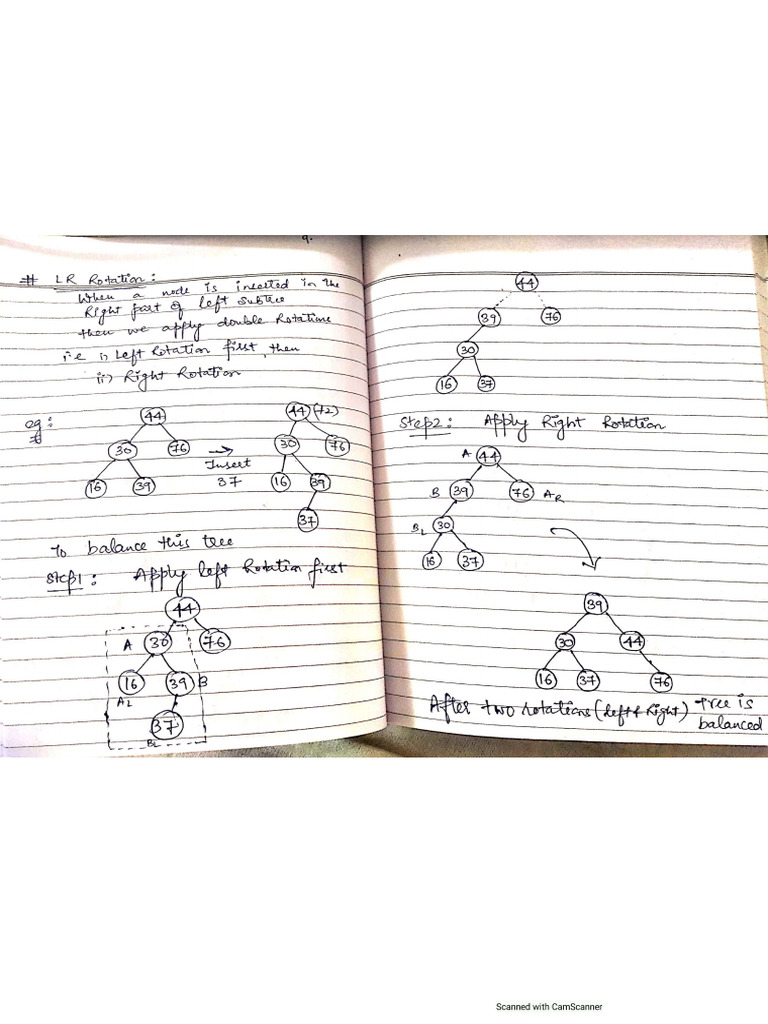 9.
# LR Rotation:
When a node is inserted in the
Right part of left subtree
then we apply double Rotations
i.e i) Left Rotation first, then
ii) Right Rotation
eg:
44
30 76
16 39
Insert
37
44 (+2)
30 76
16 39
37
To balance this tree
Step1: Apply left Rotation first
44
A 30 76
16 39 B
AL
37
BL
44
39 76
30
16 37
Step2: Apply Right Rotation
A 44
B 39 76 AR
BL 30
16 37
39
30 44
16 37 76
After two rotations (Left & Right) Tree is
balanced
Scanned with CamScanner